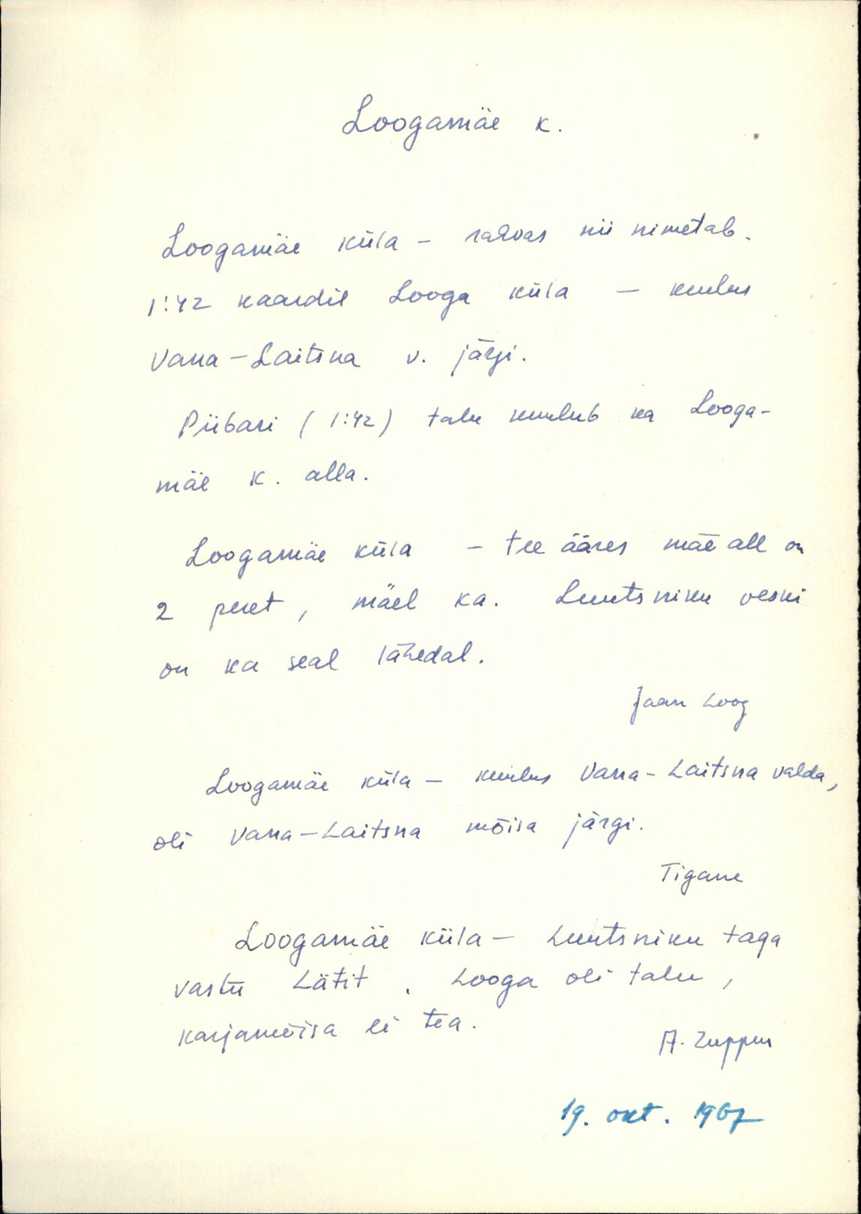 Loogamäe k.
Loogamäe küla – rahvas nii nimetab.
1:42 kaardil Looga küla – kuulus
Vana-Laitsna v. järgi.
Piibari (1:42) talu kuulub ka Looga-
mäe k. alla.
Loogamäe küla – tee ääres mäe all on
2 peret, mäel ka. Luutsniku veski
on ka seal lähedal.
Jaan Loog
Loogamäe küla – kuulus Vana-Laitsna valda,
oli Vana-Laitsna mõisa järgi.
Tigane
Loogamäe küla – Luutsniku taga
vastu Lätit. Looga oli talu,
karjamõisa ei tea.
A. Zuppur
19. okt. 1967